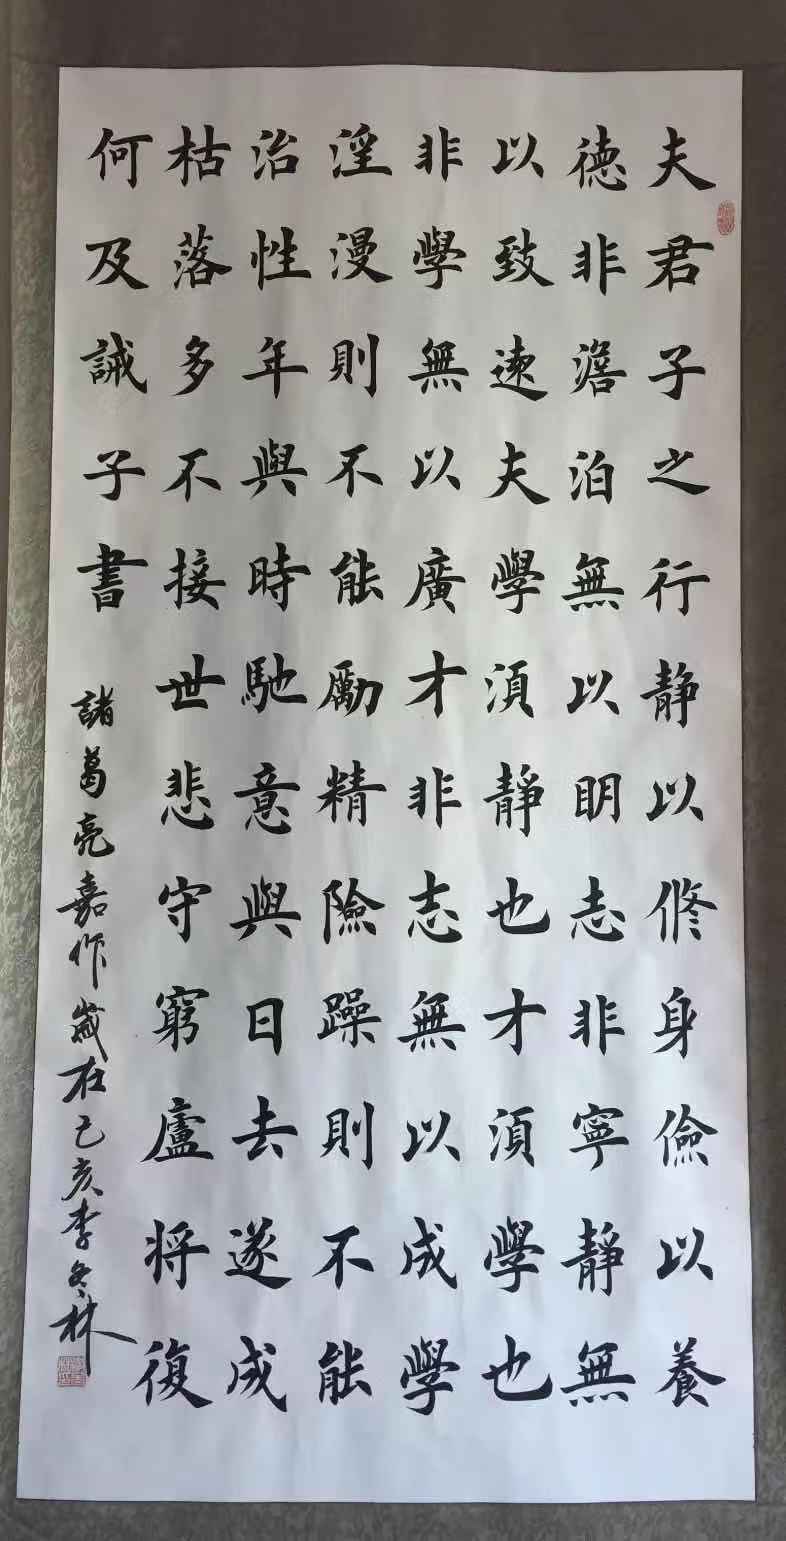 夫君子之行静以修身儉以養
德非澹泊無以明志非寧静無
以致遠夫學須静也才須學也
非學無以廣才非志無以成學
淫漫則不能勵精險躁則不能
治性年與時馳意與日去遂成
枯落多不接世悲守窮廬将復
何及誡子書
諸葛亮嘉作歲在己亥李冬林